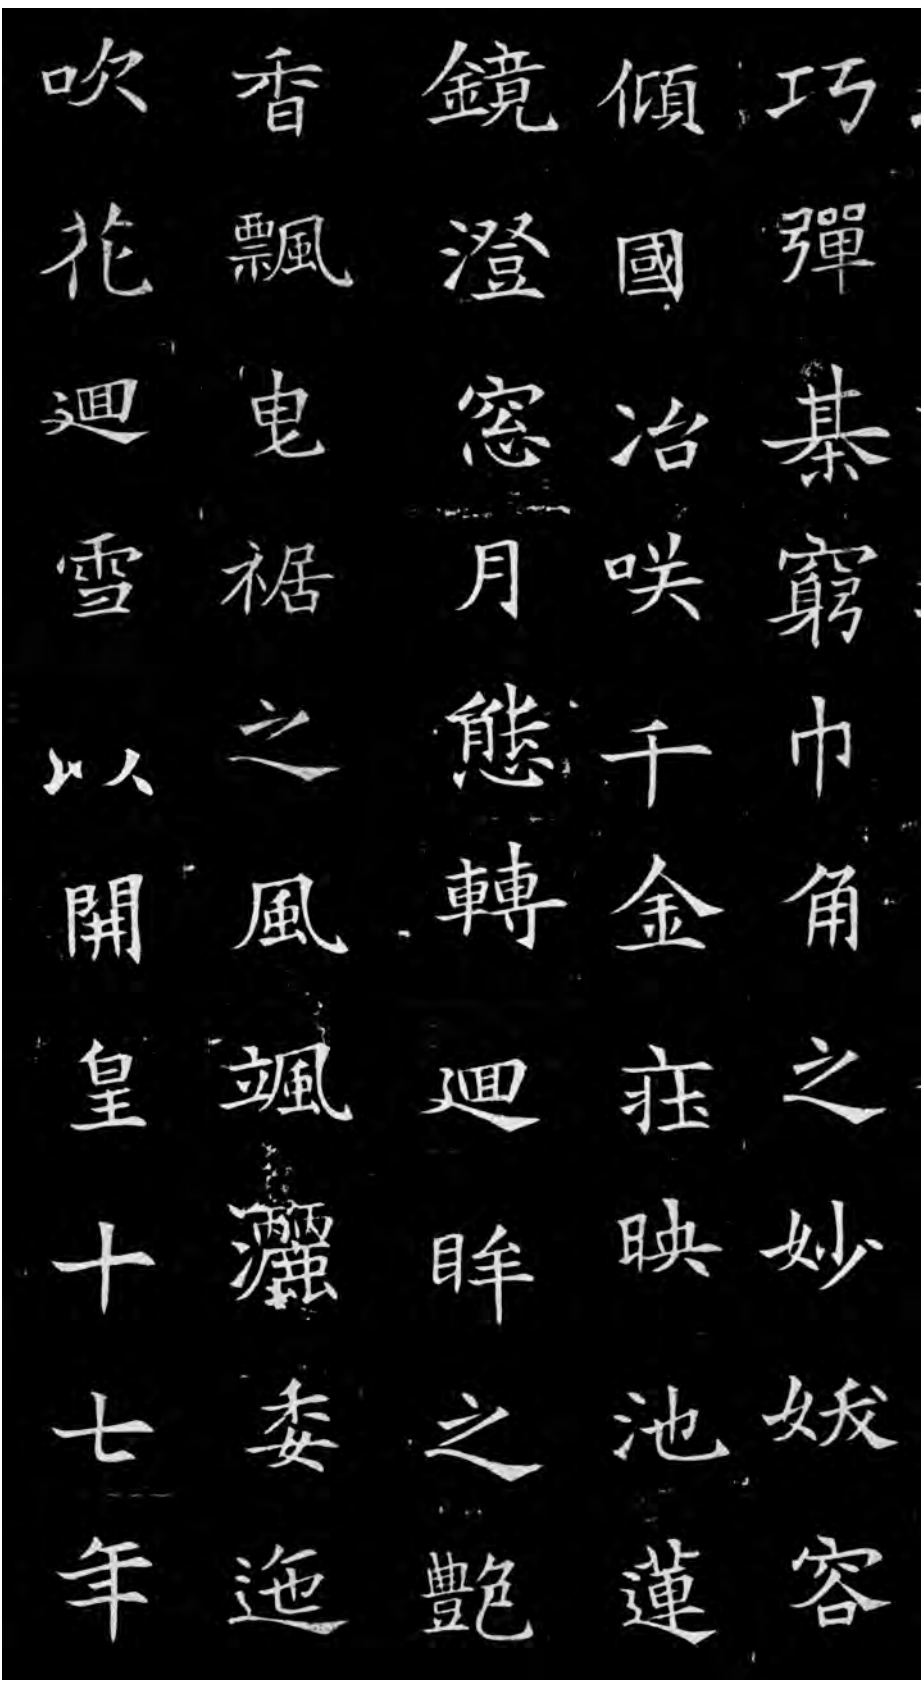 巧彈棊窮巾角之妙妖容
傾國冶咲千金莊映池蓮
鏡澄窓月態轉廻眸之艷
香飄曳裾之風颯灑委迤
吹花廻雪以開皇十七年